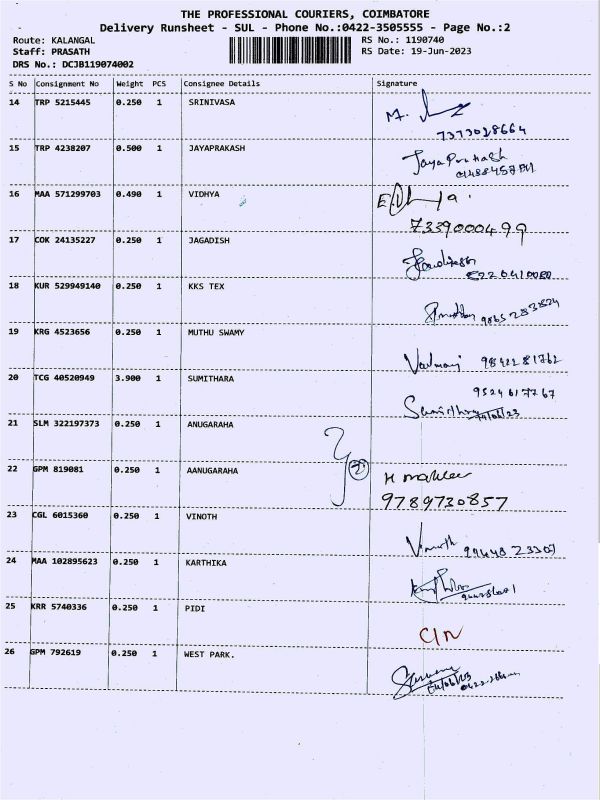 THE PROFESSIONAL COURIERS, COIMBATORE
Delivery Runsheet - SUL - Phone No.:0422-3505555 - Page No.:2
Route: KALANGAL RS No.: 1190740
Staff: PRASATH RS Date: 19-Jun-2023
DRS No.: DCJB119074002
S No Consignment No Weight PCS Consignee Details Signature
14 TRP 5215445 0.250 1 SRINIVASA
7373028664
15 TRP 4238207 0.500 1 JAYAPRAKASH JayaPrakash
16 MAA 571299703 0.490 1 VIDHYA
7339000499
17 COK 24135227 0.250 1 JAGADISH
18 KUR 529949140 0.250 1 KKS TEX
9865283824
19 KRG 4523656 0.250 1 MUTHU SWAMY
9842281762
20 TCG 40520949 3.900 1 SUMITHARA 9524617767
21 SLM 322197373 0.250 1 ANUGARAHA
2
22 GPM 819081 0.250 1 AANUGARAHA
9789730857
23 CGL 6015360 0.250 1 VINOTH
Vinoth 9944823307
24 MAA 102895623 0.250 1 KARTHIKA
25 KRR 5740336 0.250 1 PIDI
C/N
26 GPM 792619 0.250 1 WEST PARK.